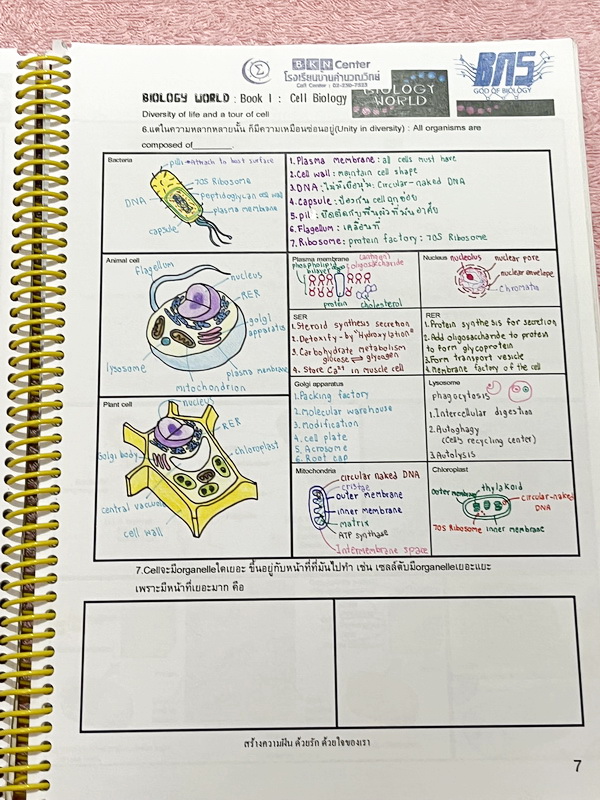 BKN Center
โรงเรียนบ้านคำนวณวิทย์
Call Center : 02-236-7533
BNS
GOD OF BIOLOGY
BIOLOGY WORLD
BIOLOGY WORLD : Book 1 : Cell Biology
Diversity of life and a tour of cell
6.แต่ในความหลากหลายนั้น ก็มีความเหมือนซ่อนอยู่(Unity in diversity) : All organisms are
composed of________.
Bacteria
pili → attach to host surface
70S Ribosome
DNA
peptidoglycan cell wall
plasma membrane
capsule
1. Plasma membrane : all cells must have
2. Cell wall : maintain cell shape
3. DNA : ไม่มีเยื่อหุ้ม : Circular-naked DNA
4. Capsule : ป้องกัน cell
5. pili :
6. Flagellum : เคลื่อนที่
7. Ribosome : protein factory : 70S Ribosome
Animal cell
Flagellum
nucleus
RER
golgi apparatus
lysosome
plasma membrane
mitochondrion
Plasma membrane
phospholipid bilayer
(antigen) oligosaccharide
protein
cholesterol
Nucleus
nucleolus
nuclear pore
nuclear envelope
chromatin
SER
1. Steroid synthesis secretion
2. Detoxify - by "Hydroxylation"
3. Carbohydrate metabolism
glucose ⇌ glycogen
4. Store Ca²⁺ in muscle cell
RER
1. Protein synthesis for secretion
2. Add oligosaccharide to protein
to form glycoprotein
3. Form transport vesicle
4. Membrane factory of the cell
Plant cell
nucleus
RER
Golgi body
chloroplast
central vacuole
cell wall
Golgi apparatus
1. Packing factory
2. Molecular warehouse
3. Modification
4. cell plate
5. Acrosome
6. Root cap
Lysosome
phagocytosis
1. Intercellular digestion
2. Autophagy
(Cell's recycling center)
3. Autolysis
Mitochondria
circular naked DNA
cristae
outer membrane
inner membrane
matrix
ATP synthase
Intermembrane space
Chloroplast
outer membrane
thylakoid
circular-naked DNA
70S Ribosome
inner membrane
7.Cellจะมีorganelleใดเยอะ ขึ้นอยู่กับหน้าที่ที่มันไปทำ เช่น เซลล์ตับมีorganelleเยอะแยะ
เพราะมีหน้าที่เยอะมาก คือ
สร้างความฝัน ด้วยรัก ด้วยใจของเรา
7